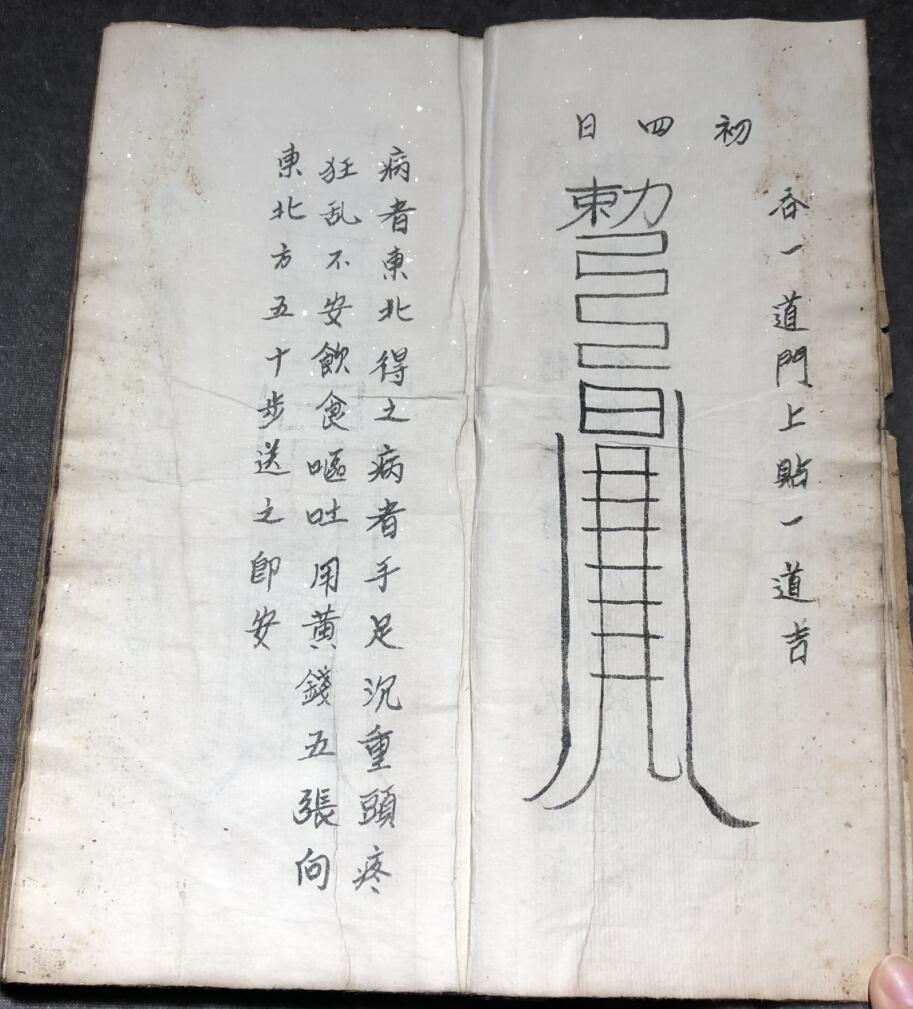 初四日
吞一道門上貼一道吉
勅
病者東北得之病者手足沉重頭疼
狂乱不安飲食嘔吐用黃錢五張向
東北方五十步送之即安